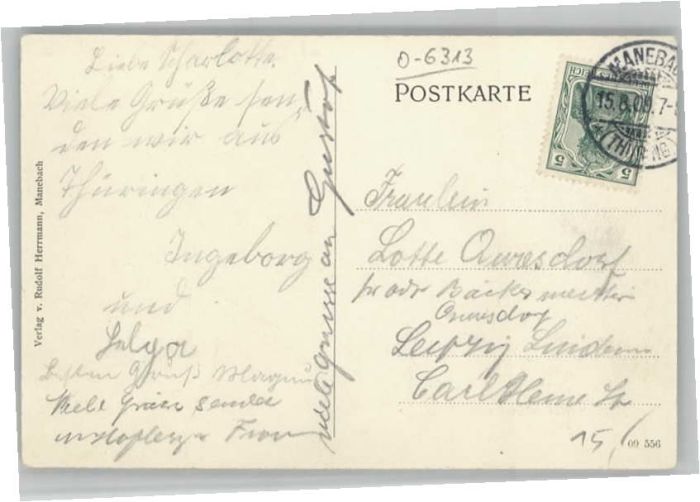 Liebe Scharlotte.
Viele Grüße sen-
den wir aus
Thüringen
Ingeborg
und
Helga
Besten Gruß Magnus
Viele Grüsse sendet
Frau
viele Grüsse an Gustav
Verlag v. Rudolf Herrmann, Manebach
O-6313
POSTKARTE
MANEBACH
15.8.09. 7-8
(THÜRING)
5 5
Fräulein
Lotte Omesdorf
pr adr Bäckermeister
Omesdorf
Leipzig Lindenau
Carl Heine Str
15,
09 556